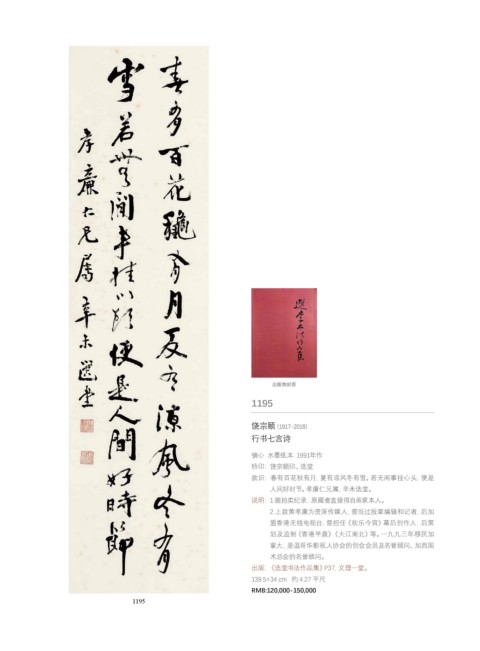 春有百花龝有月夏有凉風冬有
雪若無閒事挂心頭便是人間好時節
孝廉仁兄属 辛未 選堂
1195
出版物封面
1195
饶宗颐 (1917-2018)
行书七言诗
镜心 水墨纸本 1991年作
钤印：饶宗颐印、选堂
款识：春有百花秋有月，夏有凉风冬有雪。若无闲事挂心头，便是
人间好时节。孝廉仁兄属，辛未选堂。
说明：1.圈拍卖纪录，原藏者直接得自画家本人。
2.上款黄孝廉为资深传媒人，曾当过报章编辑和记者，后加
盟香港无线电视台，曾担任《欢乐今宵》幕后创作人，后策
划及监制《香港早晨》《大江南北》等。一九九三年移民加
拿大，是温哥华影视人协会的创会会员及名誉顾问、加西国
术总会的名誉顾问。
出版：《选堂书法作品集》P37，文理一堂。
139.5×34 cm. 约 4.27 平尺
RMB:120,000-150,000